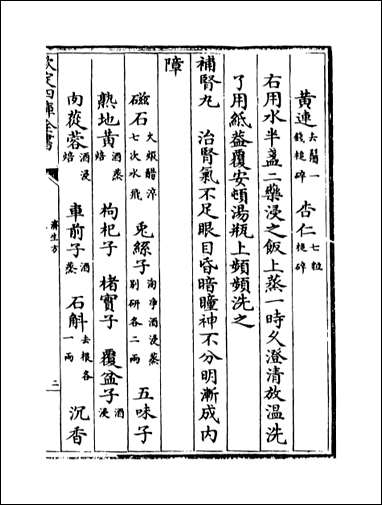 黃連去蘆一錢搥碎 杏仁七粒搥碎
右用水半盞二藥浸之飯上蒸一時久澄清放温洗
了用紙葢覆安頓湯瓶上頻頻洗之
補腎丸 治腎氣不足眼目昏暗瞳神不分明漸成内
障
磁石火煅醋淬七次水飛 兎絲子淘净酒浸蒸别研各二兩 五味子
熟地黃酒蒸焙 枸杞子 楮實子 覆盆子酒浸
肉蓯蓉酒浸焙 車前子酒蒸 石斛去根各一兩 沉香
欽定四庫全書 濟生方 二